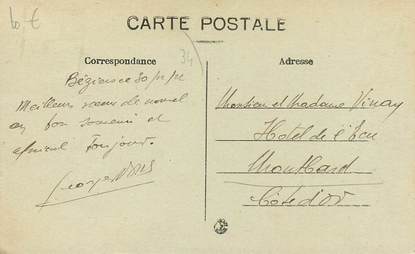 10. €
CARTE POSTALE
34
Correspondance
Adresse
Béziers ce 30/12/12
Meilleurs voeux de nouvel
an bon souvenir et
amical Toujours.
Georges
Monsieur et Madame Vinay
Hotel de l'Ecu
Montbard
Côte d'Or